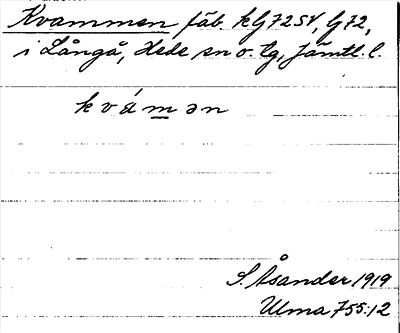 Kvammen fäb. kG72SV, G72,
i Långå, Hede sn o. tg, Jämtl. l.
kvámən
S. Åsander 1919
Ulma 755:12